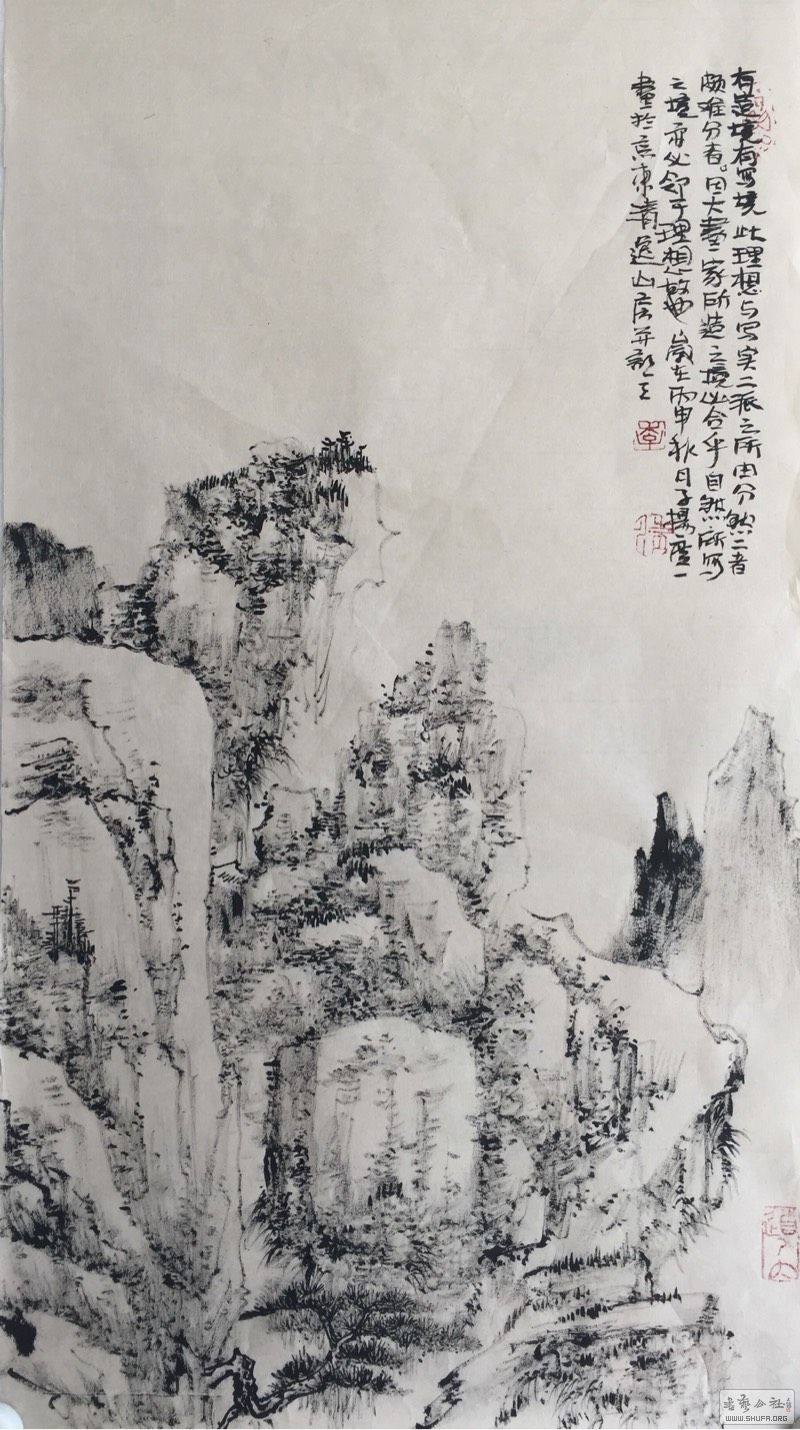 有造境有写境此理想与写实二派之所由分然二者
颇难分者。因大画家所造之境必合乎自然所写
之境亦必邻于理想故也岁在丙申秋日子扬
画于京东青逸山居并题之
书艺公社
WWW.SHUFA.ORG